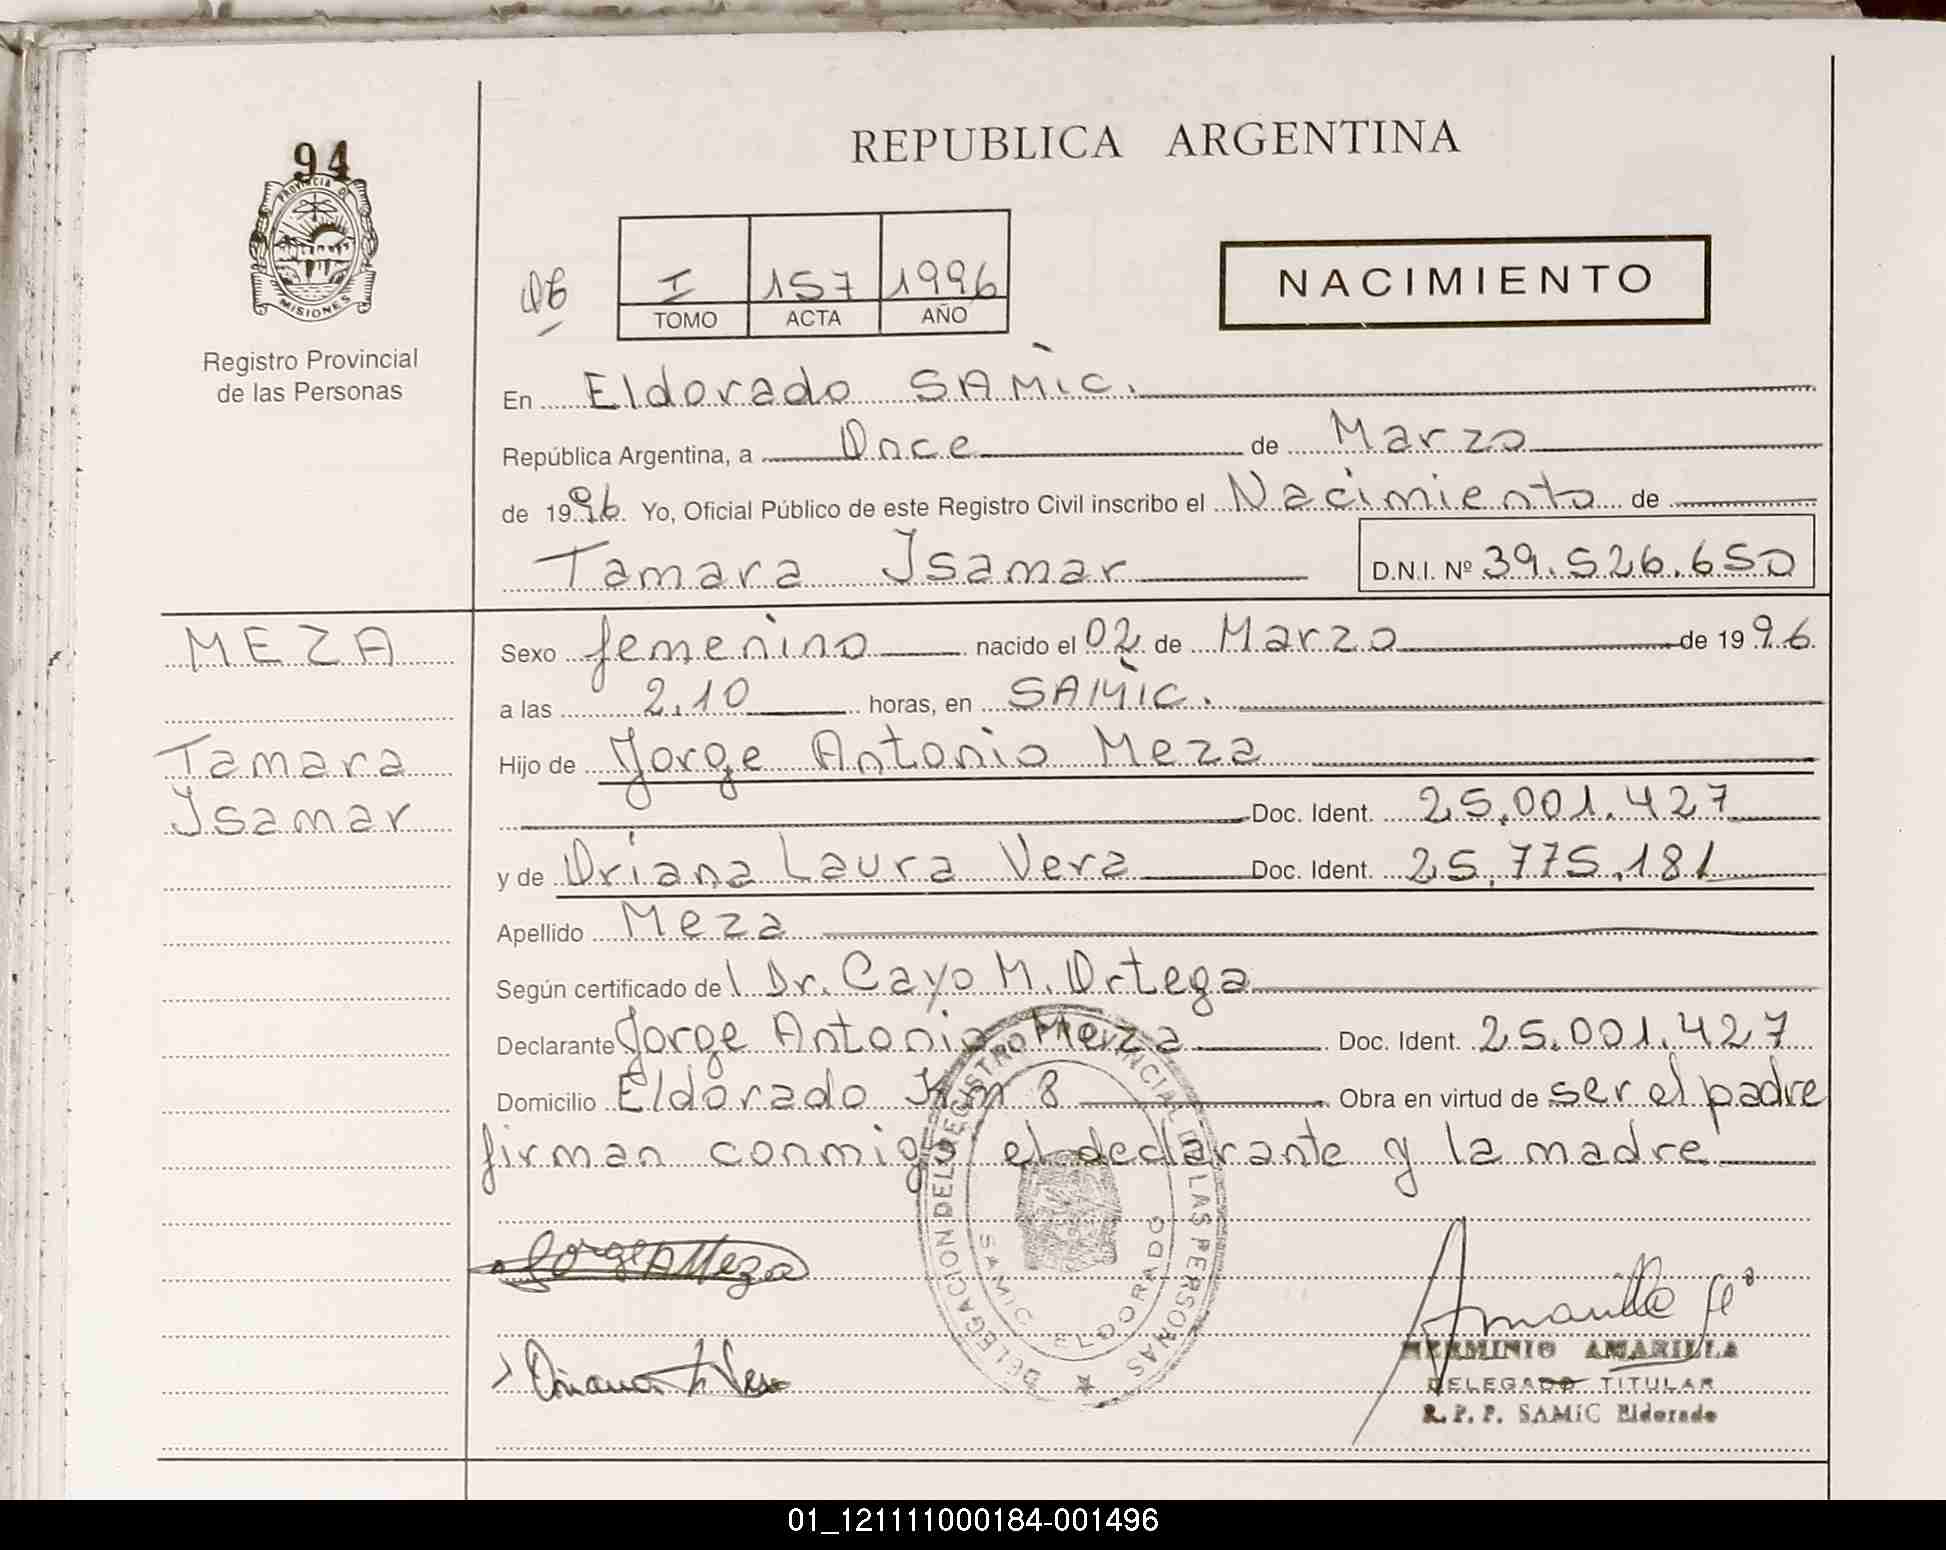 REPUBLICA ARGENTINA
94
PROVINCIA DE
MISIONES
Registro Provincial
de las Personas
I 157 1996
TOMO ACTA AÑO
NACIMIENTO
En Eldorado SAMiC.
República Argentina, a Once de Marzo
de 1996. Yo, Oficial Público de este Registro Civil inscribo el Nacimiento de
Tamara Isamar D.N.I. Nº 39.526.650
MEZA
Tamara
Isamar
Sexo femenino nacido el 02 de Marzo de 1996.
a las 2.10 horas, en SAMiC.
Hijo de Jorge Antonio Meza
Doc. Ident. 25.001.427
y de Oriana Laura Vera Doc. Ident. 25.775.181
Apellido Meza
Según certificado del Dr. Cayo M. Ortega
Declarante Jorge Antonio Meza Doc. Ident. 25.001.427
Domicilio Eldorado Km 8 Obra en virtud de ser el padre
firman conmigo el declarante y la madre
DELEGACION DEL REGISTRO PROVINCIAL DE LAS PERSONAS
SAMIC ELDORADO
Jorge A Meza
Oriana L Vera
HERMINIO AMARILLA
DELEGADO TITULAR
R. P. P. SAMiC Eldorado
01_121111000184-001496